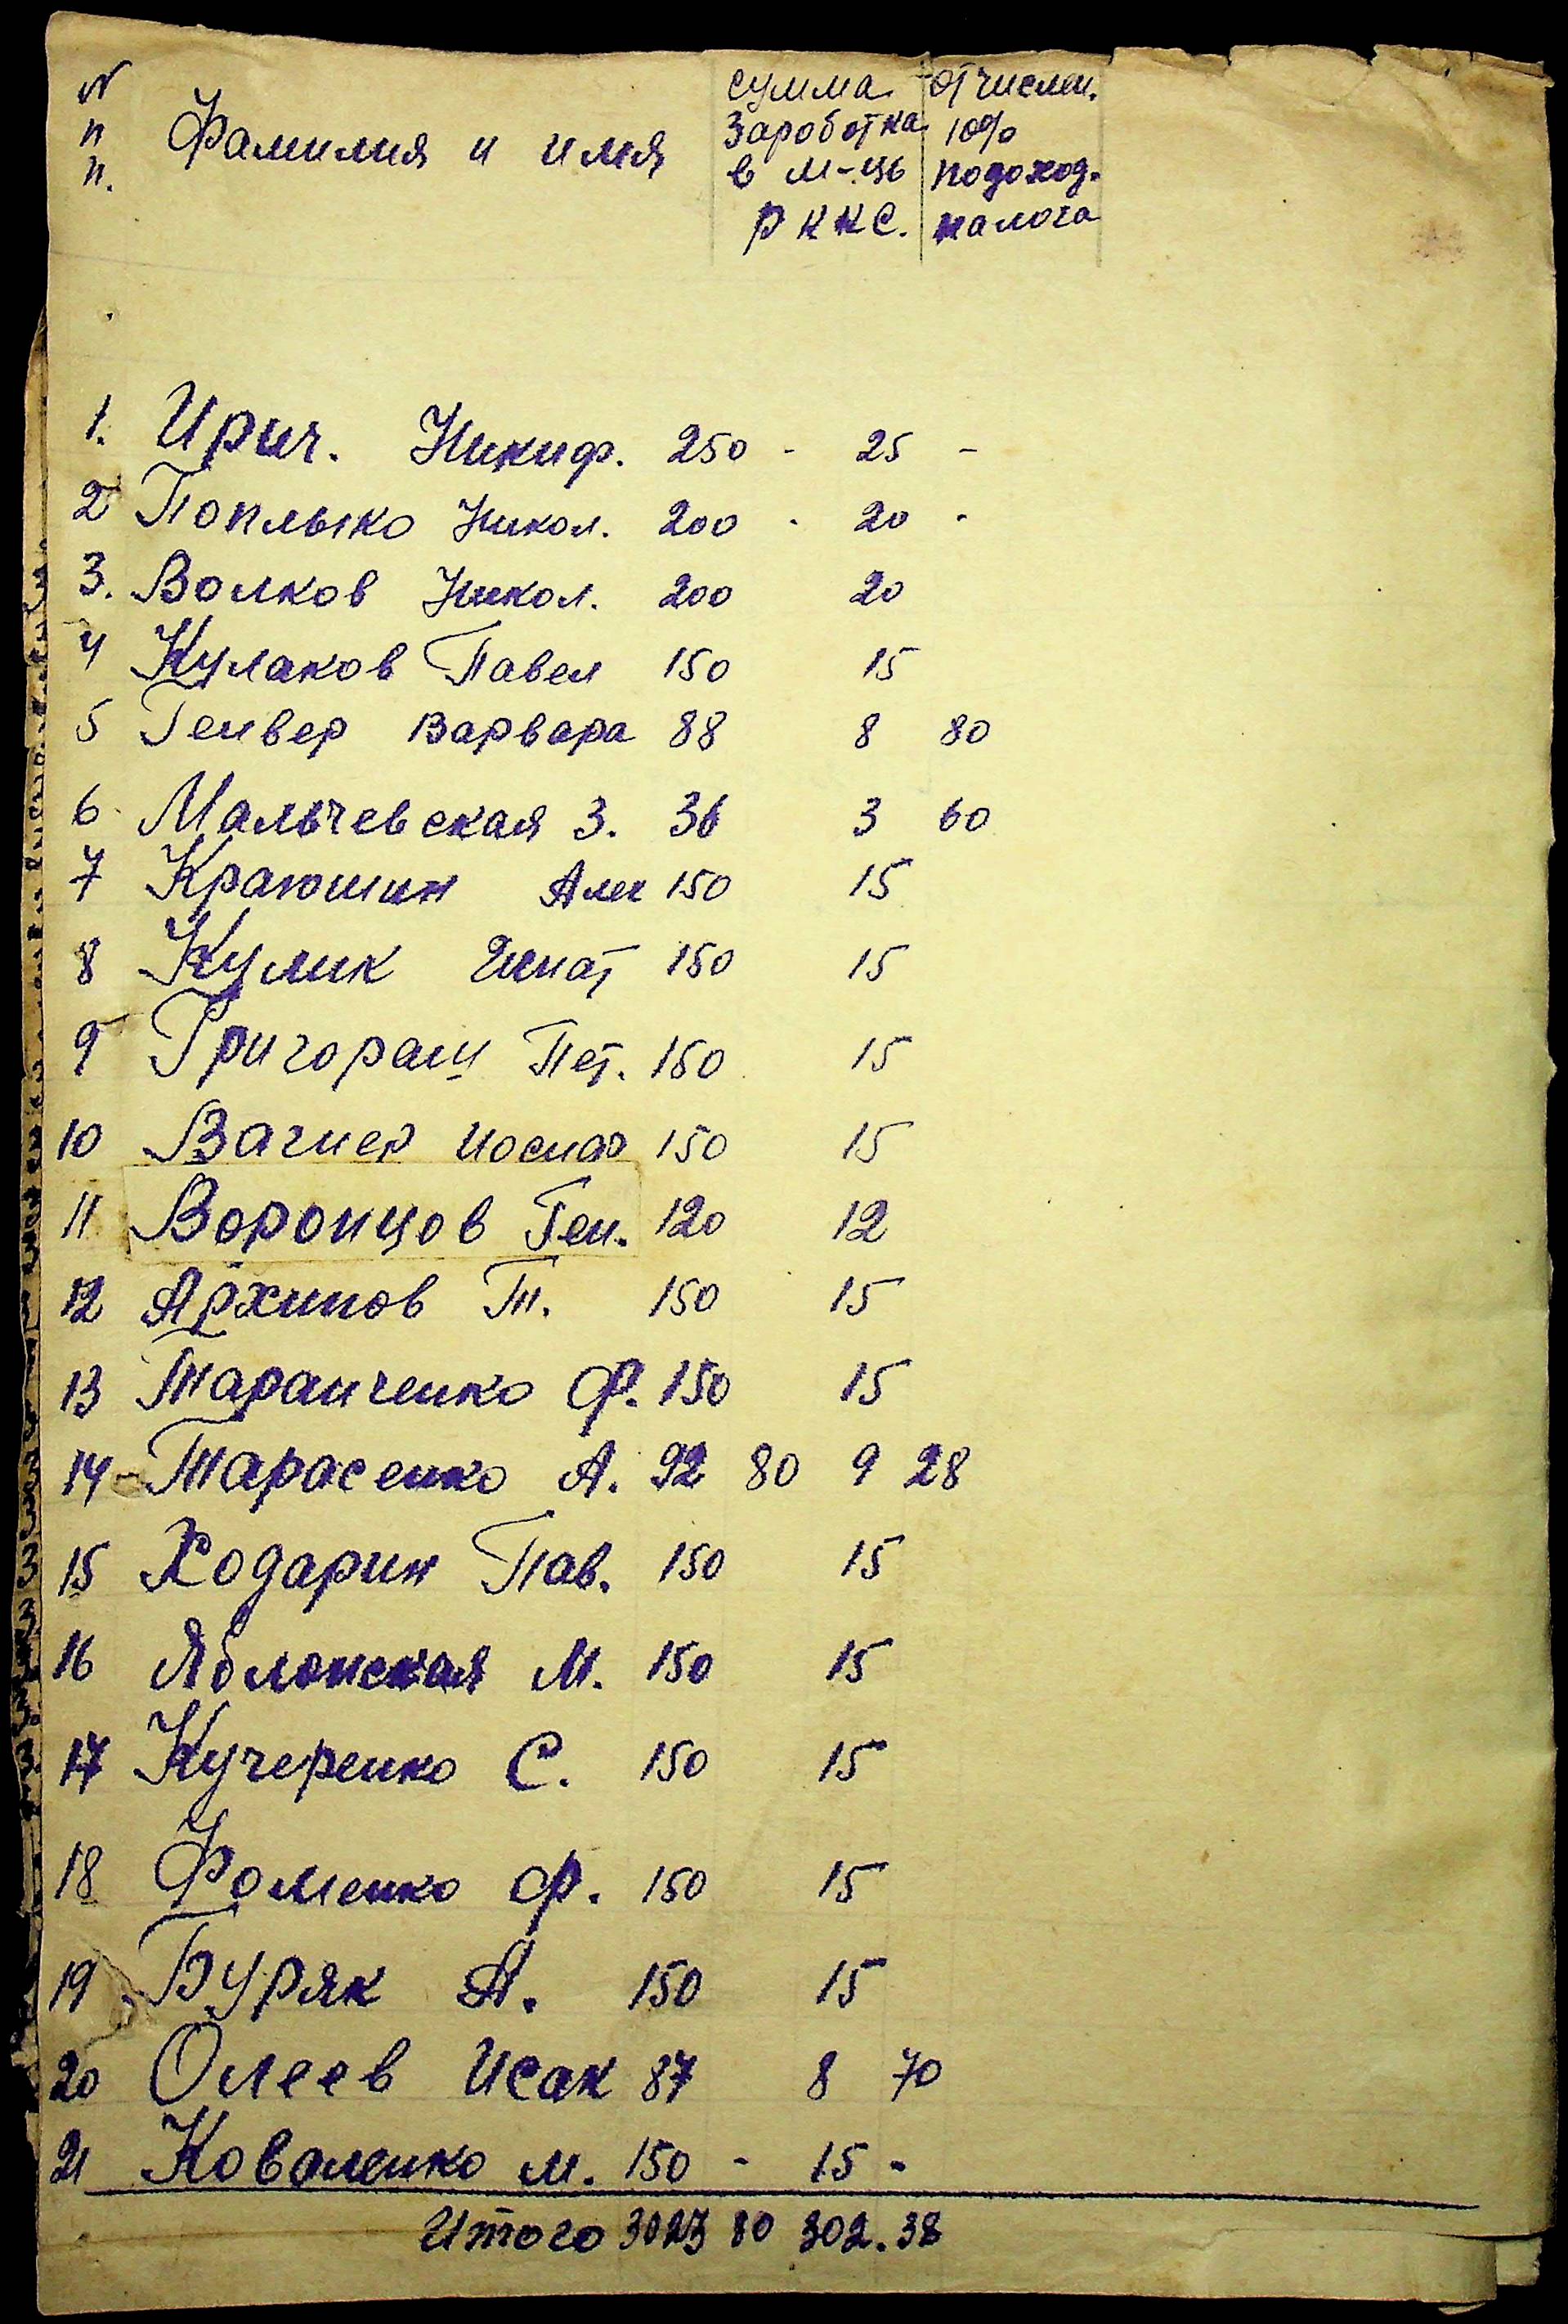 N п п. Фамилия и имя сумма заработка в м-ць РККС. отчислен. 10% подоход. налога
1. Ирич. Никиф. 250 - 25 -
2 Поплыко Никол. 200 - 20 -
3. Волков Никол. 200 20
4 Кулаков Павел 150 15
5 Генвер Варвара 88 8 80
6 Мальчевская З. 36 3 60
7 Краюшин Алек 150 15
8 Кулик Игнат 150 15
9 Григоращ Пет. 150 15
10 Вагнер Иосиф 150 15
11 Воронцов Ген. 120 12
12 Архипов Т. 150 15
13 Таранченко Ф. 150 15
14 Тарасенко А. 92 80 9 28
15 Ходарин Пав. 150 15
16 Яблонская М. 150 15
17 Кучеренко С. 150 15
18 Фоменко Ф. 150 15
19 Буряк А. 150 15
20 Олеев Исак 87 8 70
21 Коваленко М. 150 - 15 -
Итого 3023 80 302.38